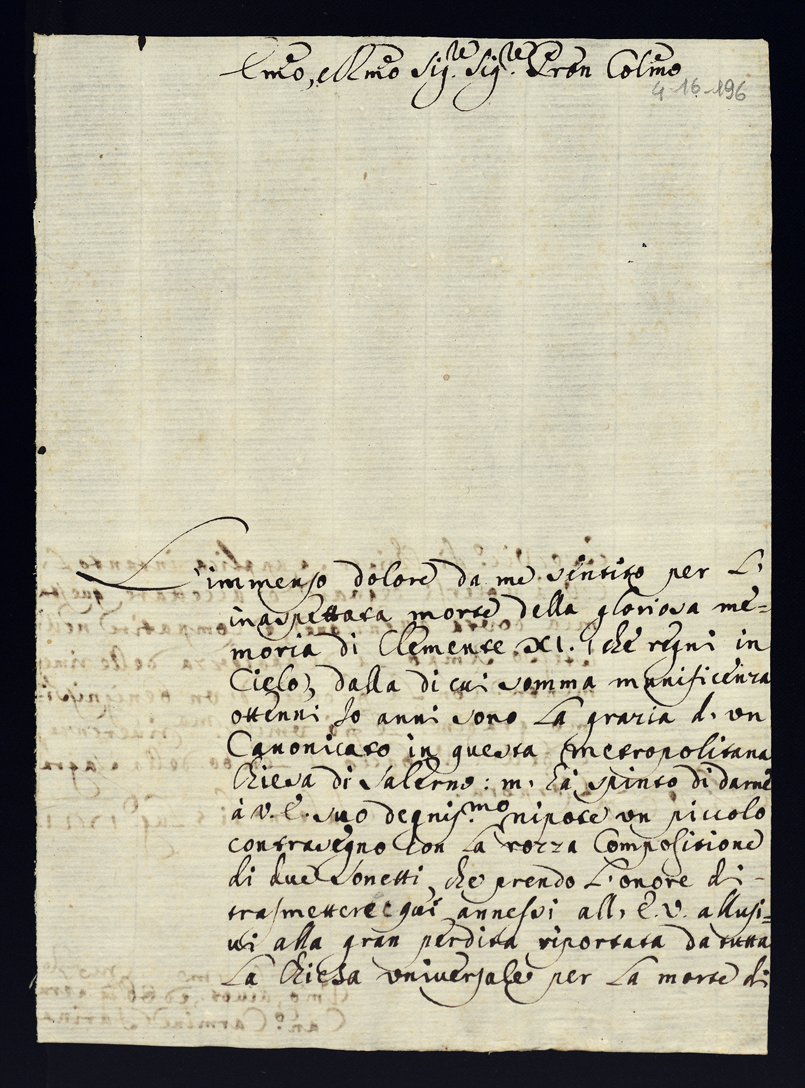 Emo, e Rmo Sig.re Sig.re Pron Colmo
4-16-196
L'immenso dolore da me sentito per l'
inaspettata morte della gloriosa me=
moria di Clemente XI. (che regni in
Cielo), dalla di cui somma munificenza
ottenni Io anni sono la grazia d' un
Canonicato in questa Metropolitana
Chiesa di Salerno: m' hà spinto di darne
à V. E. suo degnis.mo nipote un piccolo
contrasegno con la rozza Composizione
di due Sonetti, che prendo l'onore di-
trasmettere qui annessi all' E.V. allusi=
vi alla gran perdita riportata da tutta
la Chiesa universale per la morte di